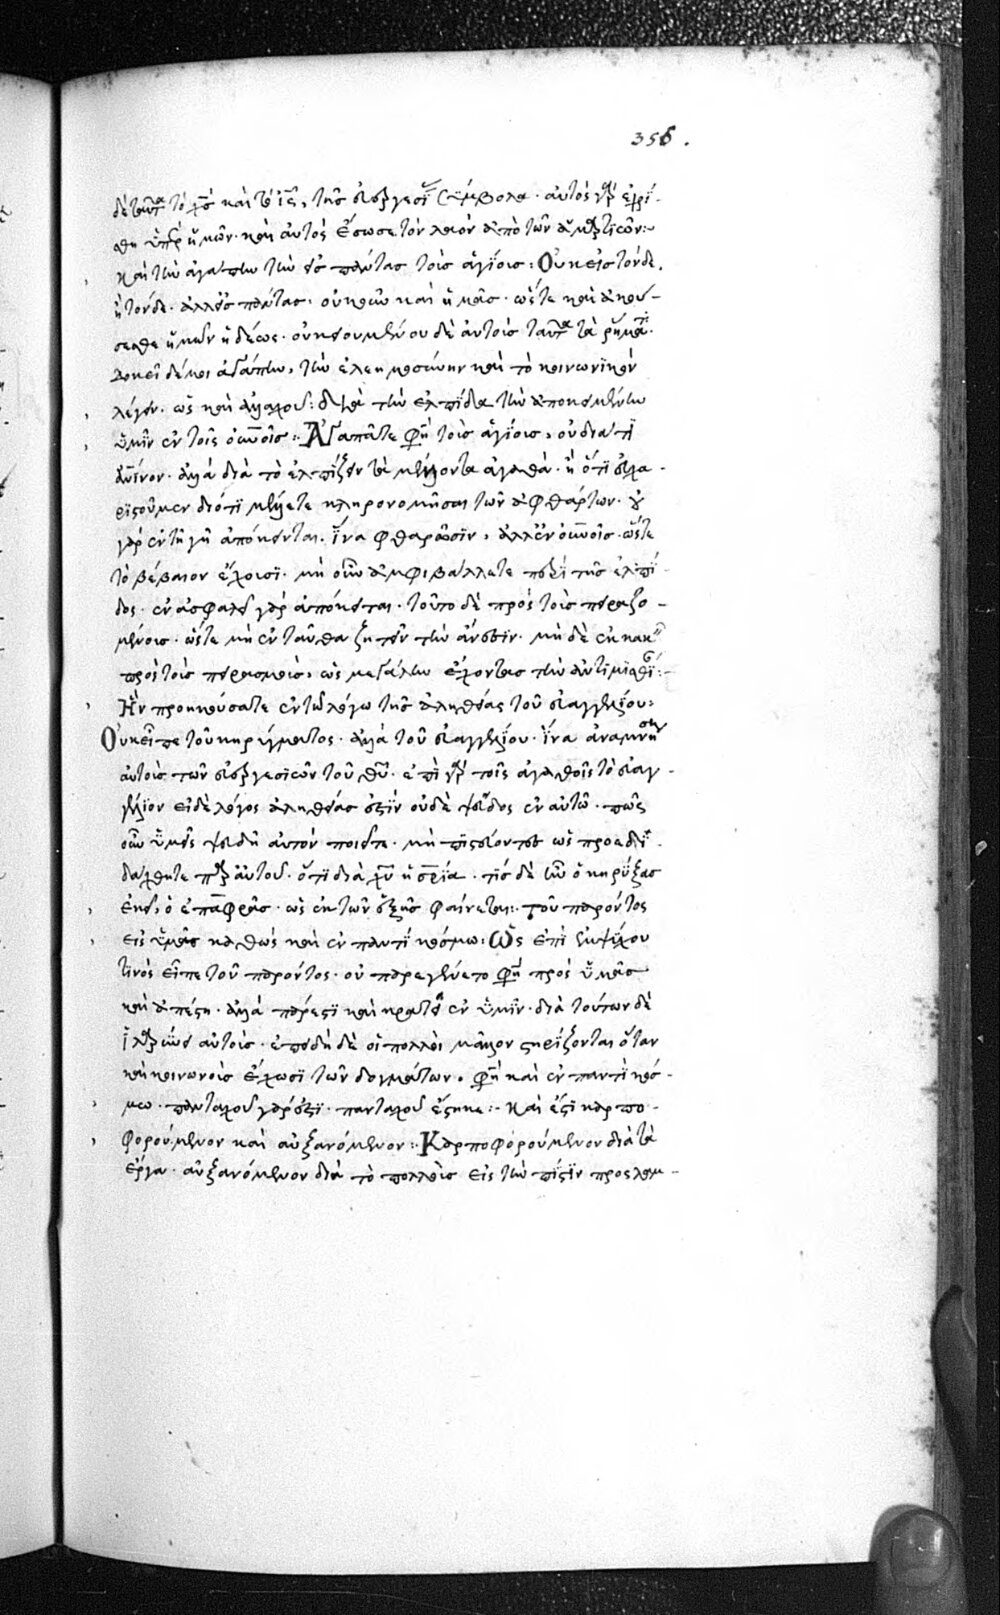 356.
δὲ ταῦτα τὸ χ̅ς̅ καὶ τὸ ι̅ς̅, τῆς εὐεργεσί σύμβολα· αὐτὸς γὰρ ἐχρί-
σθη ὑπὲρ ἡμῶν· καὶ αὐτὸς ἔσωσε τὸν λαὸν ἀπὸ τῶν ἁμαρτιῶν:-
Καὶ τὴν ἀγάπην τὴν εἰς πάντας τοὺς ἁγίους: Οὐκ εἰς τόνδε.
ἢ τόνδε· ἀλλ' εἰς πάντας· οὐκοῦν καὶ ἡμᾶς· ὥστε καὶ ἀκού-
σεσθε ἡμῶν ἡδέως· οὐκ
δοκεῖ δέ μοι ἀγάπην, τὴν ἐλεημοσύνην καὶ τὸ κοινωνικὸν
λέγειν· ὡς καὶ ἀλλαχοῦ: διὰ τὴν ἐλπίδα τὴν ἀποκειμένην
ὑμῖν ἐν τοῖς οὐ̅νοῖς:· Ἀγαπᾶτε φησὶ τοὺς ἁγίους, οὐ διά τι
ἀν̅ινον· ἀλλὰ διὰ τὸ ἐλπίζειν τὰ μέλλοντα ἀγαθά· ἢ ὅτι εὐχα-
ριστοῦμεν διότι μέλλετε κληρονομῆσαι τῶν ἀφθάρτων· οὐ
γὰρ ἐν τῇ γῇ ἀπόκεινται. ἵνα φθαρῶσιν, ἀλλ' ἐν οὐ̅νοῖς· ὥστε
τὸ βέβαιον ἔχουσι· μὴ οὖν ἀμφιβάλλετε περὶ τῆς ἐλπί-
δος· ἐν ἀσφαλεῖ γὰρ ἀπόκειται· τοῦτο δὲ πρὸς τοὺς πειραζο-
μένους· ὥστε μὴ ἐνταῦθα ζητεῖν τὴν ἄνεσιν· μὴ δὲ ἐκκακεῖν
πρὸς τοὺς πειρασμοὺς, ὡς μεγάλην ἔχοντας τὴν ἀντιμισθί:-
Ἣν προηκούσατε ἐν τῷ λόγῳ τῆς ἀληθείας τοῦ εὐαγγελίου:
Οὐκ εἶπε τοῦ κηρύγματος· ἀλλὰ τοῦ εὐαγγελίου· ἵνα ἀναμνήσῃ
αὐτοὺς τῶν εὐεργεσιῶν τοῦ θ̅υ̅· ἐπὶ γὰρ τοῖς ἀγαθοῖς τὸ εὐαγ-
γέλιον εἰ δὲ λόγος ἀληθείας ἐστὶν οὐδὲ ψεῦδος ἐν αὐτῷ· πῶς
οὖν ὑμεῖς ψευδῆ αὐτὸν ποιεῖτε· μὴ πιστεύοντες ὡς προεδι-
δάχθητε παρ' αὐτοῦ· ὅτι διὰ χ̅υ̅ ἡ σ̅ρία· τίς δὲ ἦν ὁ κηρύξας
ἐκεῖ, ὁ ἐπαφρᾶς· ὡς ἐκ τῶν ἑξῆς φαίνεται: Τοῦ παρόντος
εἰς ὑμᾶς καθὼς καὶ ἐν παντὶ κόσμῳ: Ὡς ἐπὶ ἐμψύχου
τινὸς εἶπε τοῦ παρόντος· οὐ παρεγένετο φησὶ πρὸς ὑμᾶς
καὶ ἀπέστη· ἀλλὰ πάρεστι καὶ κρατεῖ ἐν ὑμῖν· διὰ τούτων δὲ
αὐτοὺς· ἐπειδὴ δὲ οἱ πολλοὶ μᾶλλον στηρίζονται ὅταν
καὶ κοινωνοὺς ἔχωσι τῶν δογμάτων· φησὶ καὶ ἐν παντὶ κόσ-
μῳ· πανταχοῦ γάρ ἐστι· πανταχοῦ ἕστηκε:- Καὶ ἔστι καρπο-
φορούμενον καὶ αὐξανόμενον: Καρποφορούμενον διὰ τὰ
ἔργα· αὐξανόμενον διὰ τὸ πολλοὺς εἰς τὴν πίστιν προςλαμ-